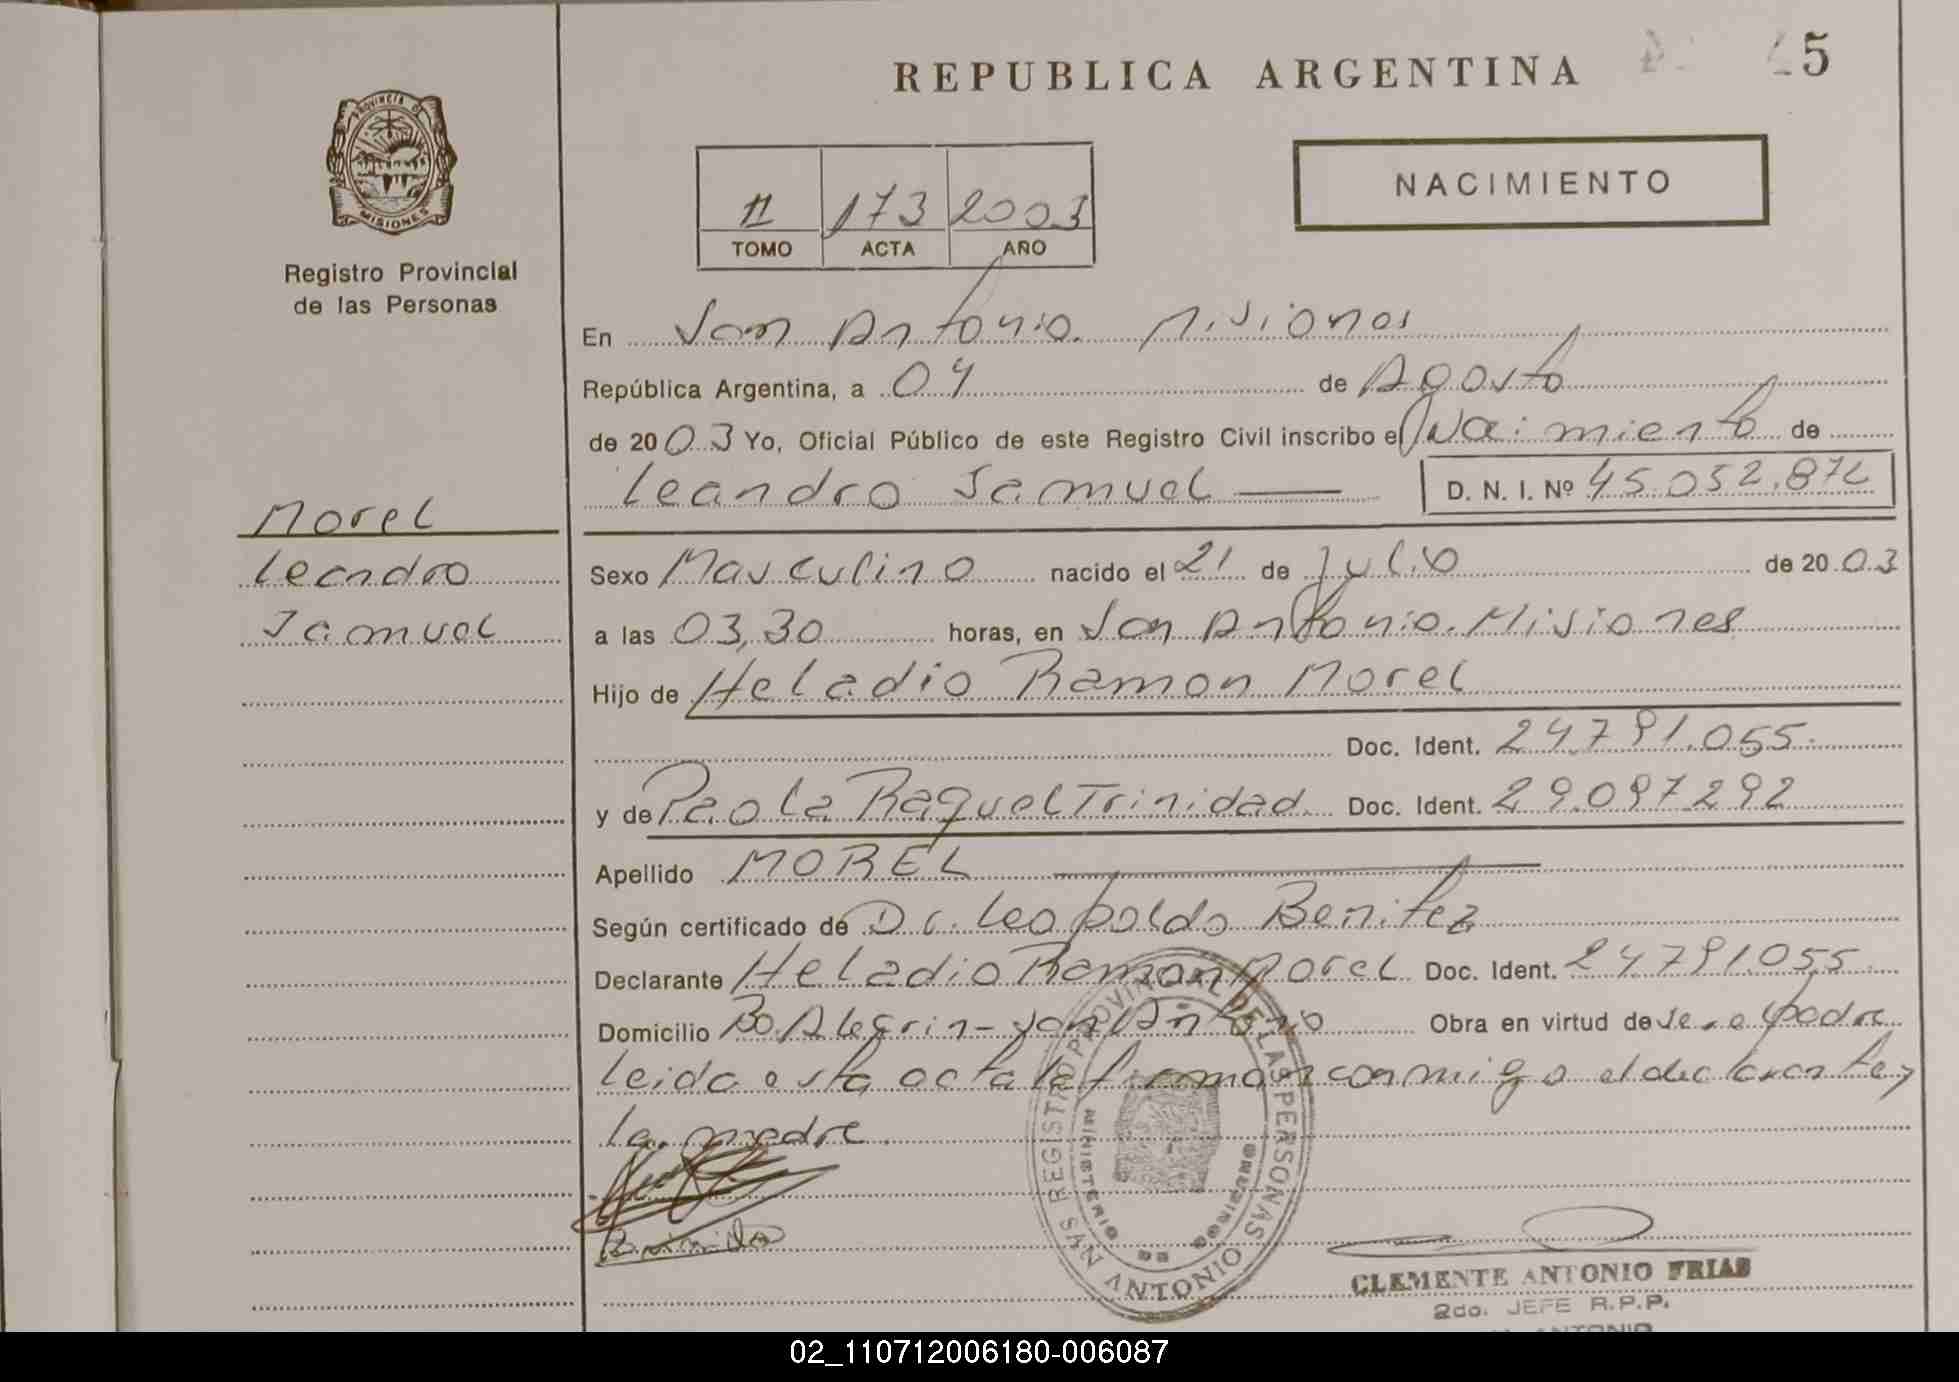 REPUBLICA ARGENTINA
5
PROVINCIA DE
MISIONES
Registro Provincial
de las Personas
NACIMIENTO
II 173 2003
TOMO ACTA AÑO
En San Antonio. Misiones
República Argentina, a 04 de Agosto
de 2003 Yo, Oficial Público de este Registro Civil inscribo el Naimiento de
Leandro Samuel D. N. I. Nº 45.052.872
Morel
Leandro
Samuel
Sexo Masculino nacido el 21 de Julio de 2003
a las 03,30 horas, en San Antonio. Misiones
Hijo de Heladio Ramon Morel
Doc. Ident. 24.791.055.
y de Paola Raquel Trinidad. Doc. Ident. 29.097292
Apellido MOREL
Según certificado de Dr. Leopoldo Benitez
Declarante Heladio Ramon Morel Doc. Ident. 24791055.
Domicilio Bo. Alegrin - San Antonio Obra en virtud de ser padre
leida esta acta la firman conmigo el declarante y
la madre.
REGISTRO PROVINCIAL DE LAS PERSONAS
SAN ANTONIO
MINISTERIO DE GOBIERNO
CLEMENTE ANTONIO FRIAS
2do. JEFE R.P.P.
ANTONIO
02_110712006180-006087